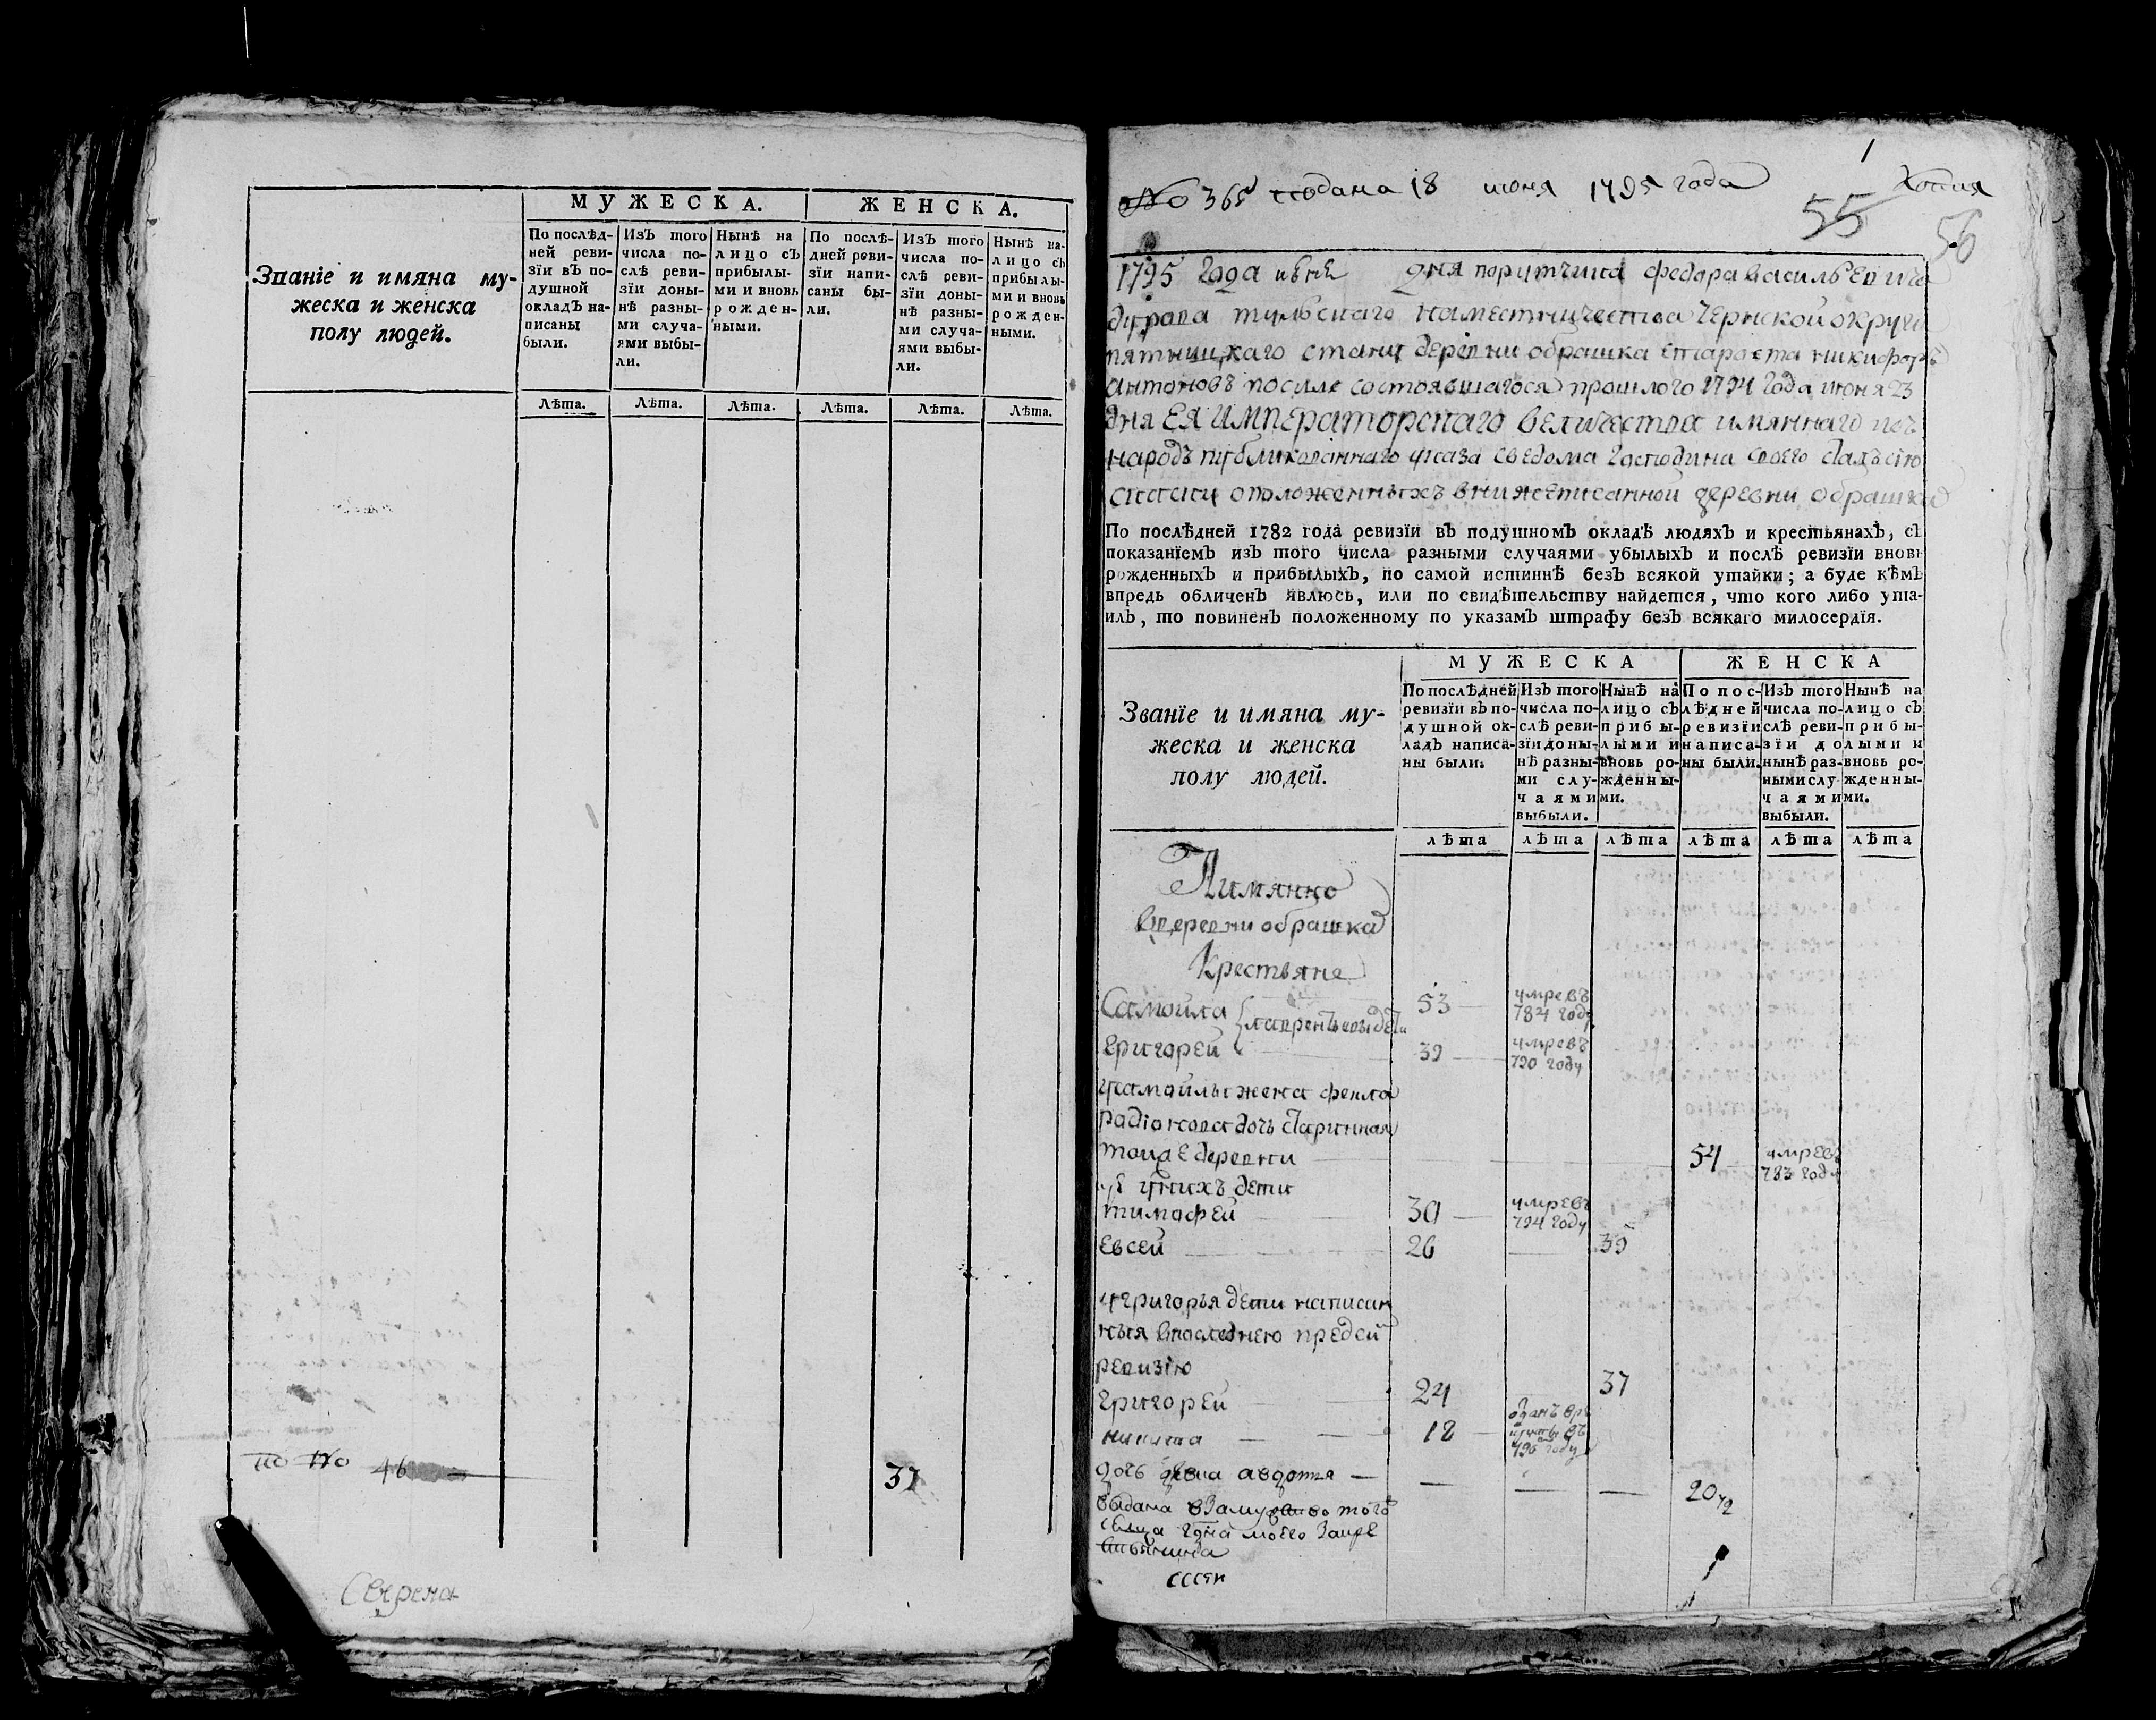 МУЖЕСКА.
ЖЕНСКА.
Званіе и имяна му-
жеска и женска
полу людей.
По послѣд-
ней реви-
зїи въ по-
душной
окладъ на-
писаны
были.
Изъ того
числа по-
слѣ реви-
зїи доны-
нѣ разны-
ми случа-
ями выбы-
ли.
Нынѣ на
лицо съ
прибылы-
ми и вновь
рожден-
ными.
По послѣ-
дней реви-
зїи напи-
саны бы-
ли.
Изъ того
числа по-
слѣ реви-
зїи доны-
нѣ разны-
ми случа-
ями выбы-
ли.
Нынѣ на-
лицо съ
прибылы-
ми и вновь
рожден-
ными.
Лѣта. Лѣта. Лѣта. Лѣта. Лѣта. Лѣта.
по № 46 37
1
№ 365 подана 18 июня 1795 года Копия
55 56
1795 года июня дня порутчика федора васильевича
дурова тульскаго наместничества Чернской округи
пятницкаго стану деревни обрашка староста никифоръ
антоновъ по силе состоявшагося прошлого 1794 года июня 23
дня ЕЯ ИМПЕРАТОРСКАГО величества имяннаго
народъ публикованнаго указа сведома господина своего далъ сию
скаску оположенныхъ внижеписанной деревни обрашка
По послѣдней 1782 года ревизїи въ подушномъ окладѣ людяхъ и крестьянахъ, съ
показанїемъ изъ того числа разными случаями убылыхъ и послѣ ревизїи вновь
рожденныхъ и прибылыхъ, по самой истиннѣ безъ всякой утайки; а буде кѣмъ
впредь обличенъ явлюсь, или по свидѣтельству найдется, что кого либо ута-
илъ, то повиненъ положенному по указамъ штрафу безъ всякаго милосердїя.
МУЖЕСКА
ЖЕНСКА
Званїе и имяна му-
жеска и женска
полу людей.
По послѣдней
ревизїи въ по-
душной ок-
ладъ написа-
ны были.
Изъ того
числа по-
слѣ реви-
зїи доны-
нѣ разны-
ми слу-
чаями
выбыли.
Нынѣ на
лицо съ
прибы-
лыми и
вновь ро-
жденны-
ми.
По пос-
лѣдней
ревизїи
написа-
ны были.
Изъ того
числа по-
слѣ реви-
зїи до
нынѣ раз-
ными слу-
чаями
выбыли.
Нынѣ на
лицо съ
прибы-
лыми и
вновь ро-
жденны-
ми.
лѣта лѣта лѣта лѣта лѣта лѣта
Аимянно
вдеревни обрашка
Крестьяне
Самойла лаврентьевы дети 53 умре въ 784 году
Григорей 39 умре въ 790 году
усамойлы жена фекла
радионова дочь старинная
тойже деревни 54 умре въ 783 году
унихъ дети
тимофей 30 умре въ 794 году
евсей 26 39
угригорья дети написан
ныя впоследнею пред сей
ревизию
григорей 24 37
никита 18 отданъ въ рекруты въ году
дочь девка авдотья 20
выдана взамужство того
сельца гдна моего